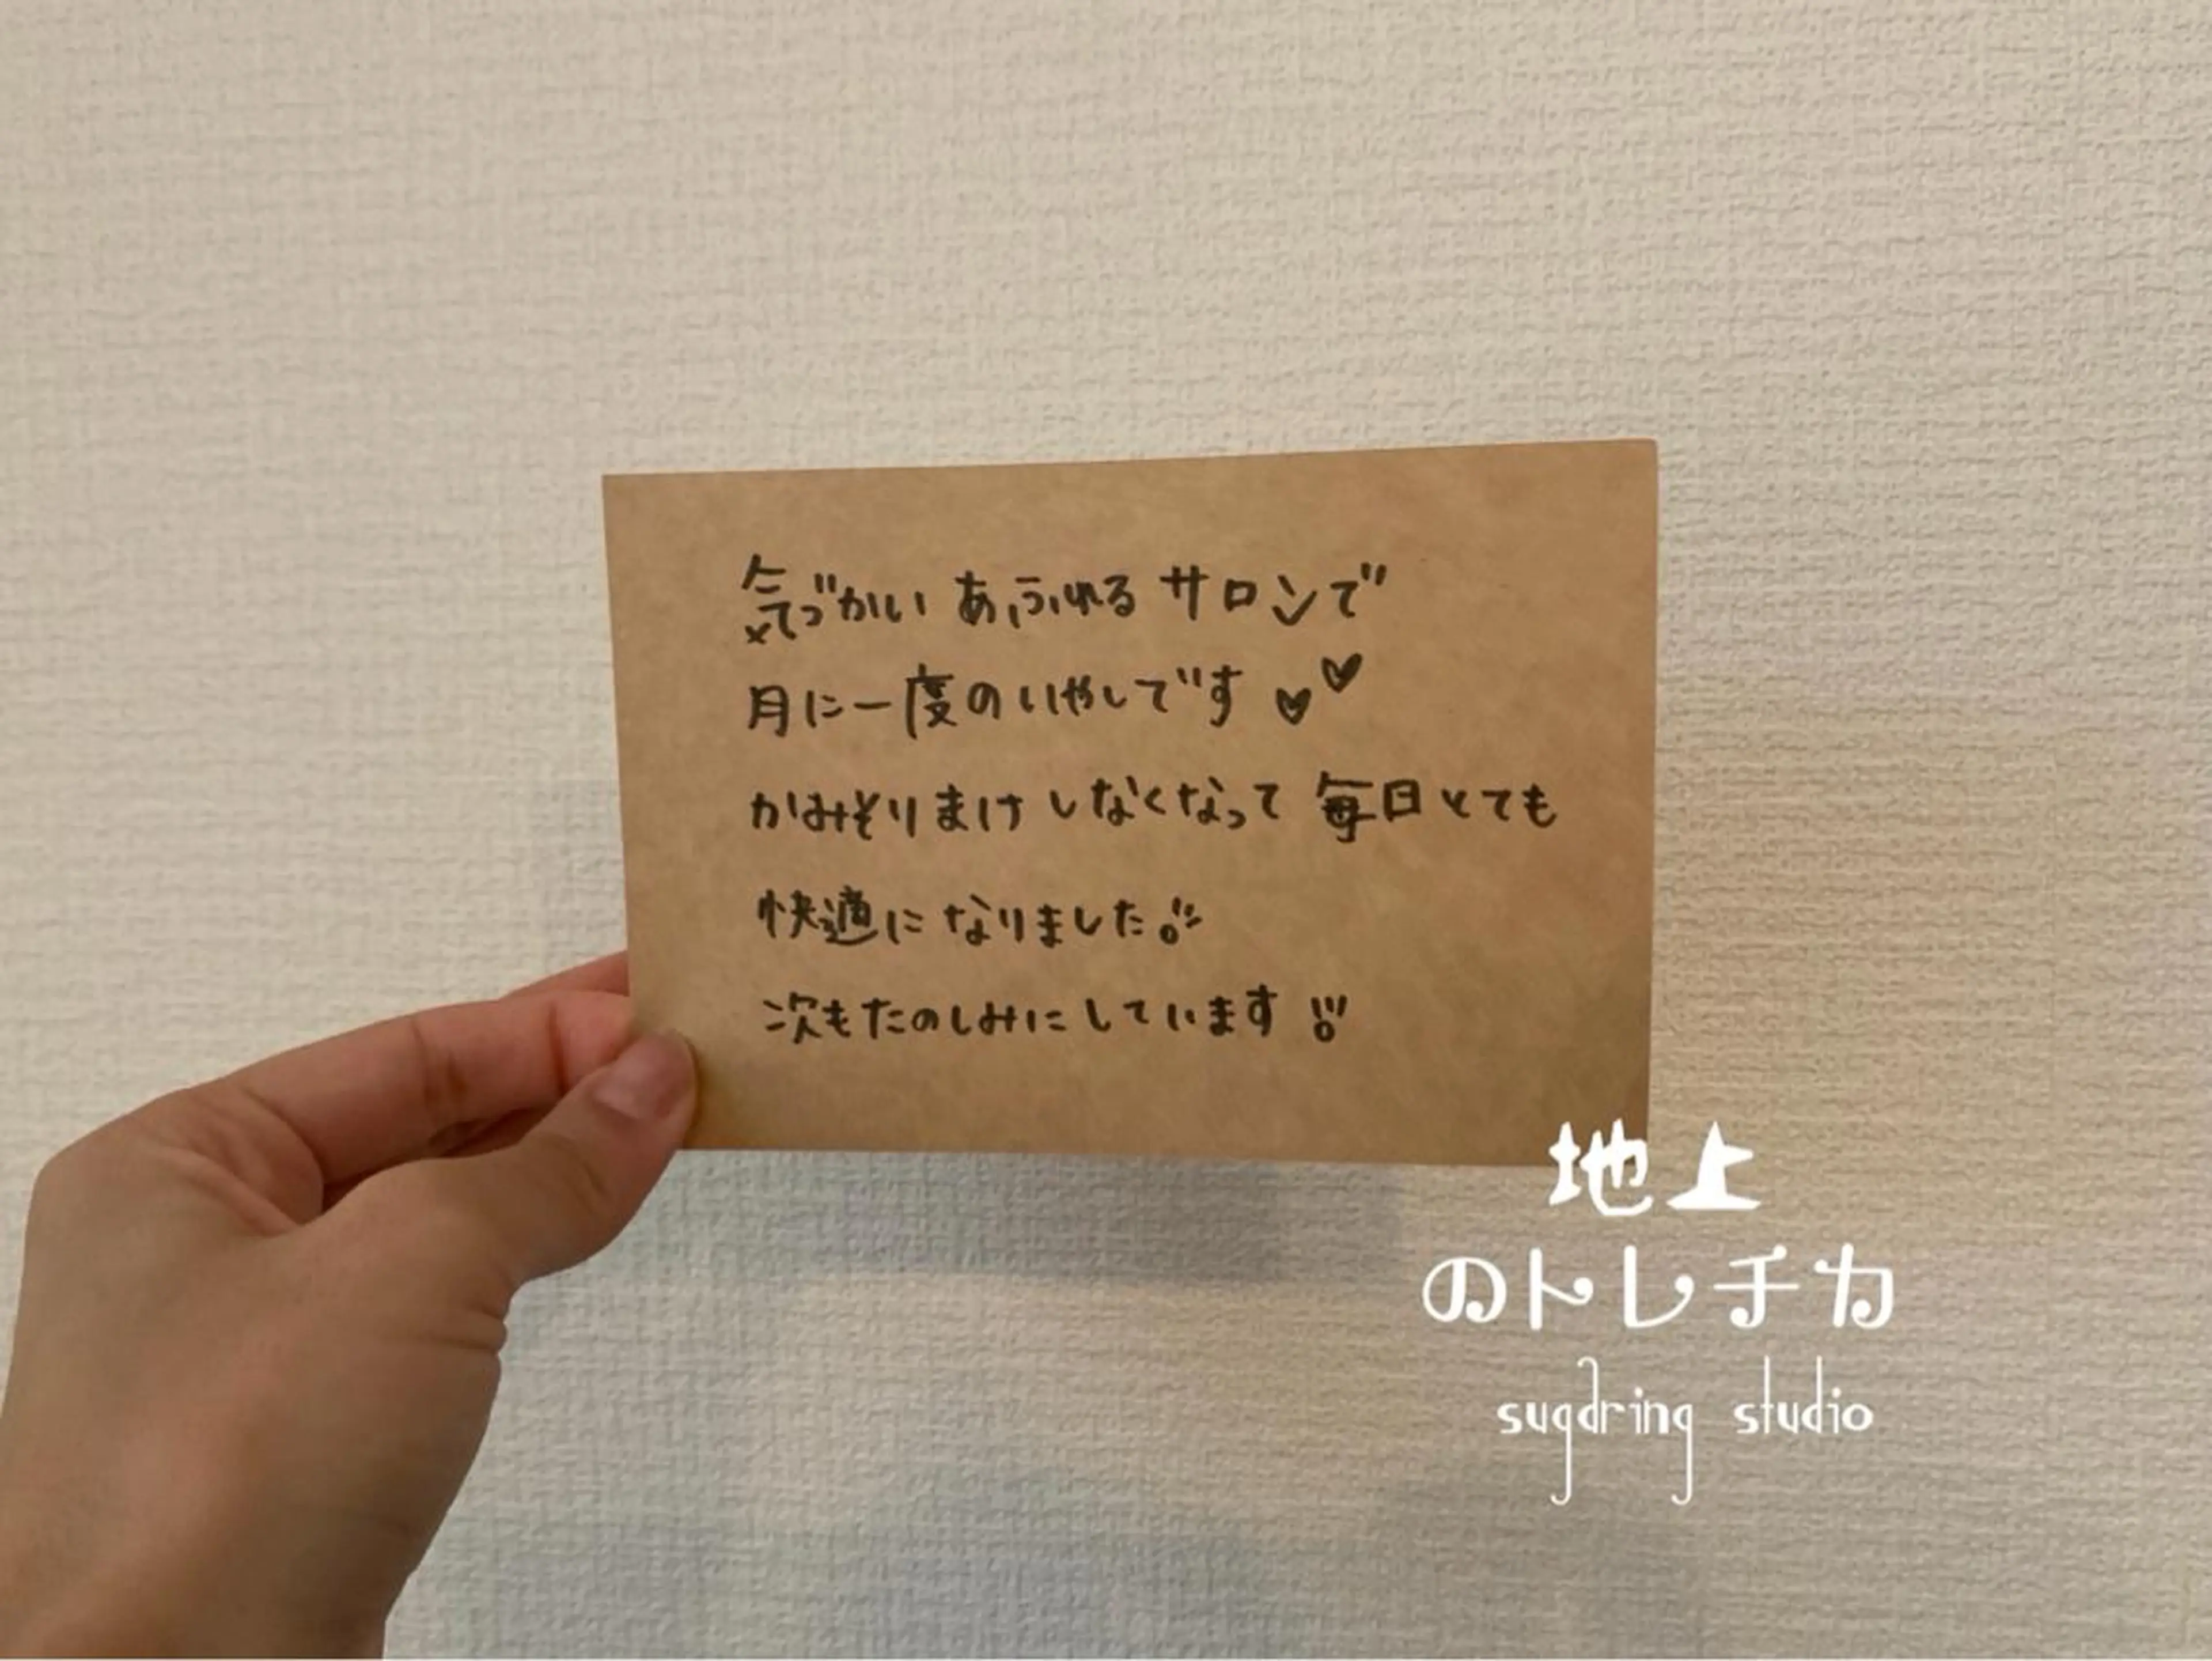 気づかいあふれるサロンで
月に一度のいやしです♥♥
かみそりまけしなくなって毎日とても
快適になりました!!
次もたのしみにしています!!!
地上
のトレチカ
sugaring studio